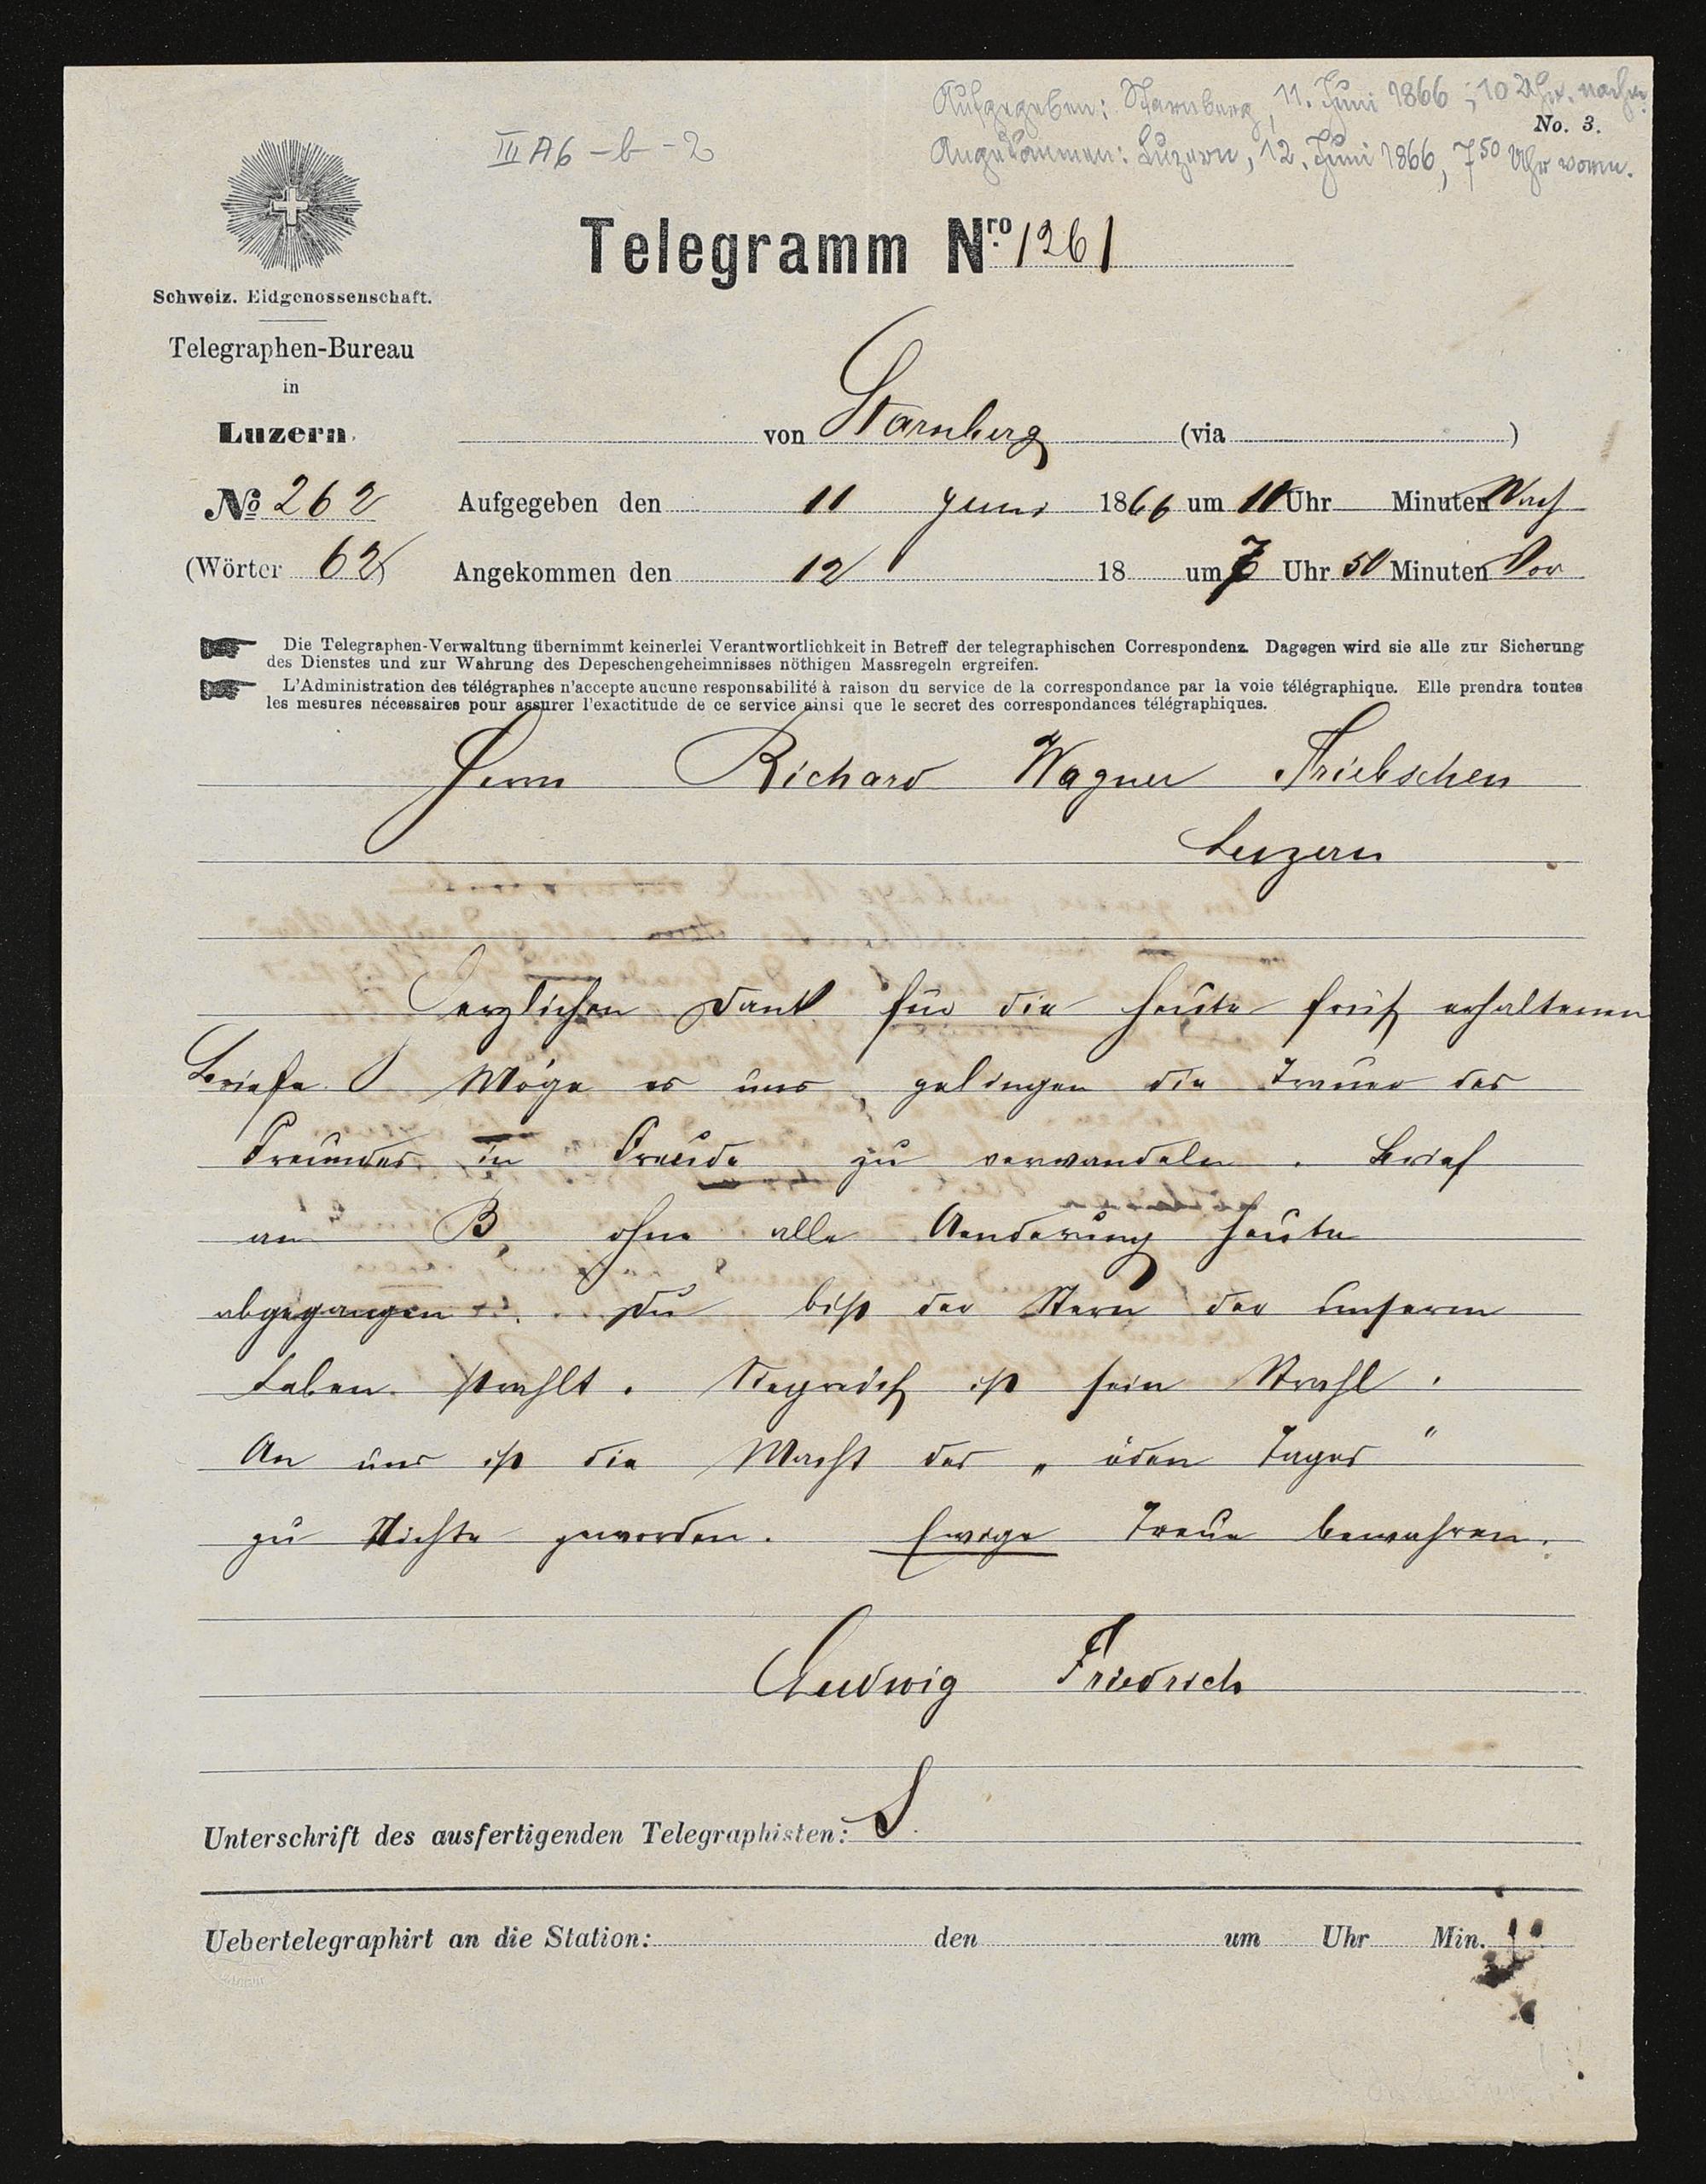 Aufgegeben: Starnberg, 11. Juni 1866, 10 Uhr. nachm.
No. 3.
III A6 - b - 2
Angekommen: Luzern, 12. Juni 1866, 7 50 Uhr vorm.
Telegramm Nro. 1261
Schweiz. Eidgenossenschaft.
Telegraphen-Bureau
in
Luzern.
von Starnberg (via )
No 262 Aufgegeben den 11 Juni 1866 um 10 Uhr Minuten Nach
(Wörter 62) Angekommen den 12 18 um 7 Uhr 50 Minuten Vor
Die Telegraphen-Verwaltung übernimmt keinerlei Verantwortlichkeit in Betreff der telegraphischen Correspondenz. Dagegen wird sie alle zur Sicherung
des Dienstes und zur Wahrung des Depeschengeheimnisses nöthigen Massregeln ergreifen.
L'Administration des télégraphes n'accepte aucune responsabilité à raison du service de la correspondance par la voie télégraphique. Elle prendra toutes
les mesures nécessaires pour assurer l'exactitude de ce service ainsi que le secret des correspondances télégraphiques.
Herrn Richard Wagner Triebschen
Luzern
Herzlichen Dank für die heute früh erhaltenen
Briefe. Möge es uns gelingen die Trauer des
Freundes in Freude zu verwandeln. Brief
an B, ohne alle Aenderung heute
abgegangen. Du bist der Stern der unserm
Leben strahlt. Siegreich ist sein Strahl.
An uns ist die Macht des „öden Tages"
zu Nichte geworden. Ewige Treue bewahren.
Ludwig Friedrich
Unterschrift des ausfertigenden Telegraphisten: S
Uebertelegraphirt an die Station: den um Uhr Min.